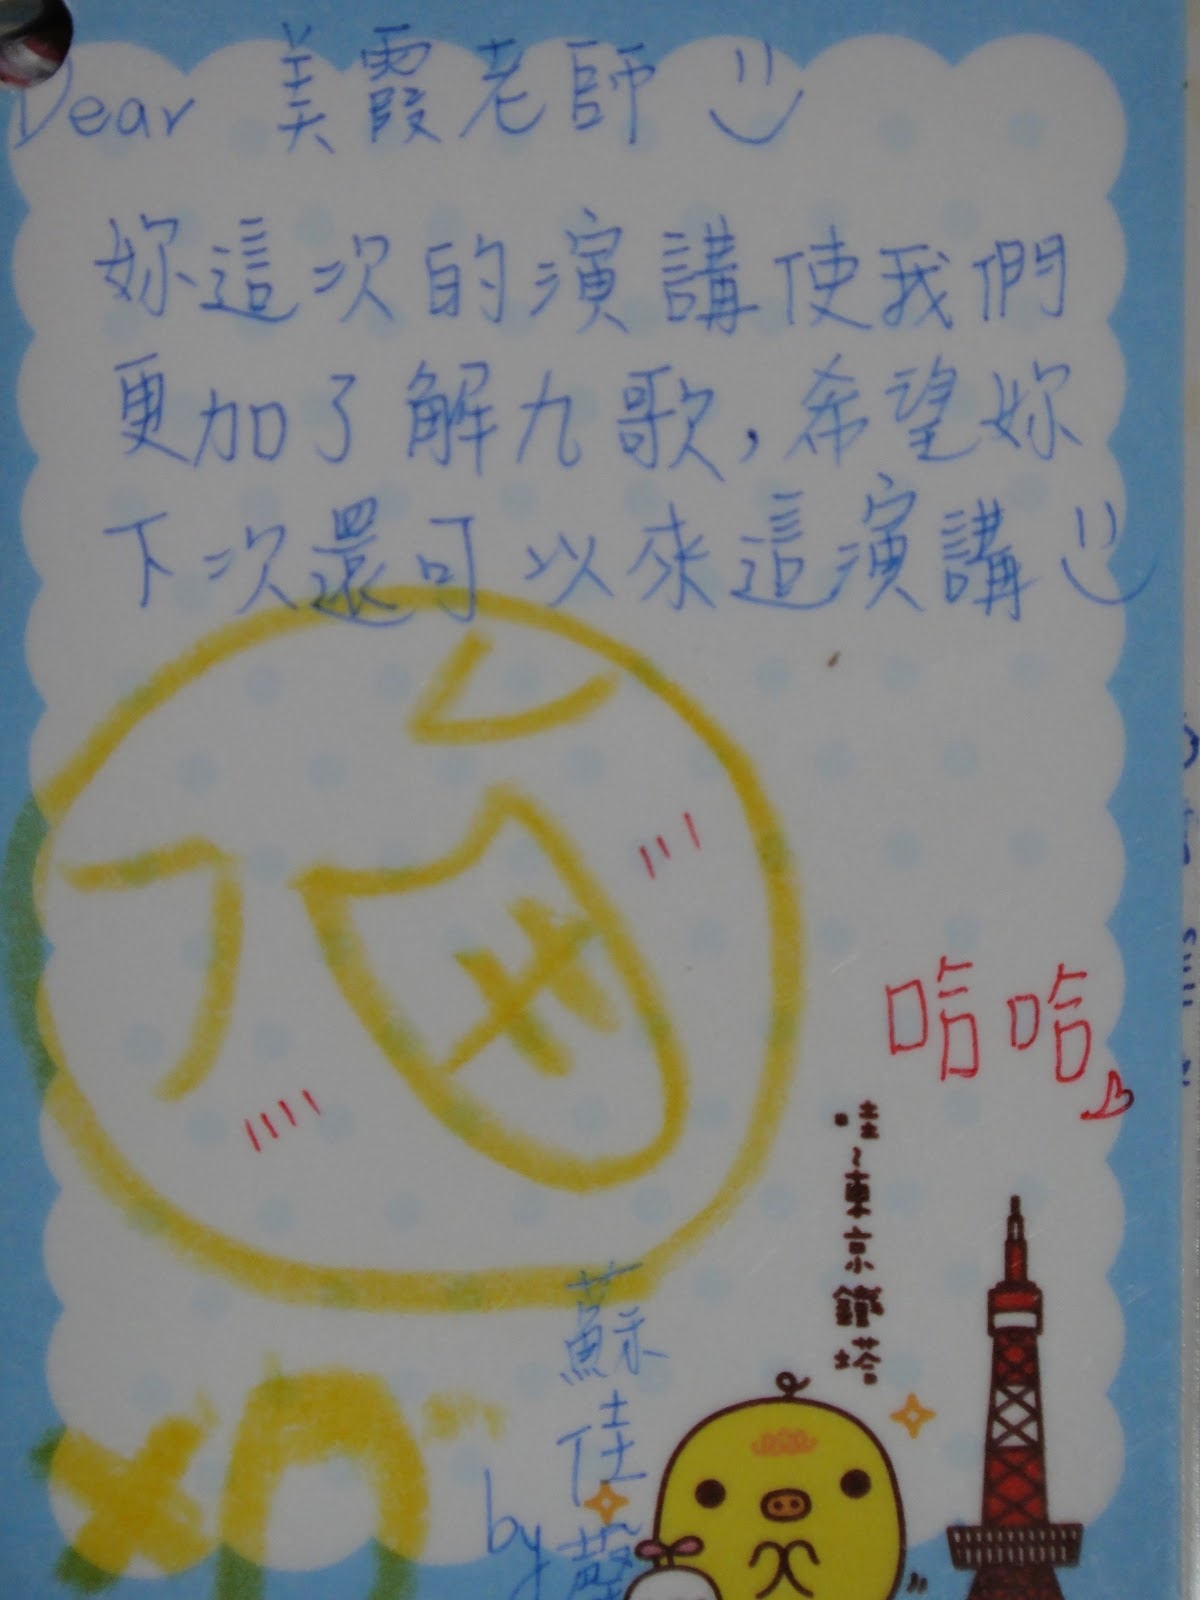 Dear 美霞老師
妳這次的演講使我們
更加了解九歌，希望妳
下次還可以來這演講
哈哈
哇~東京鐵塔
XD
by 蘇佳